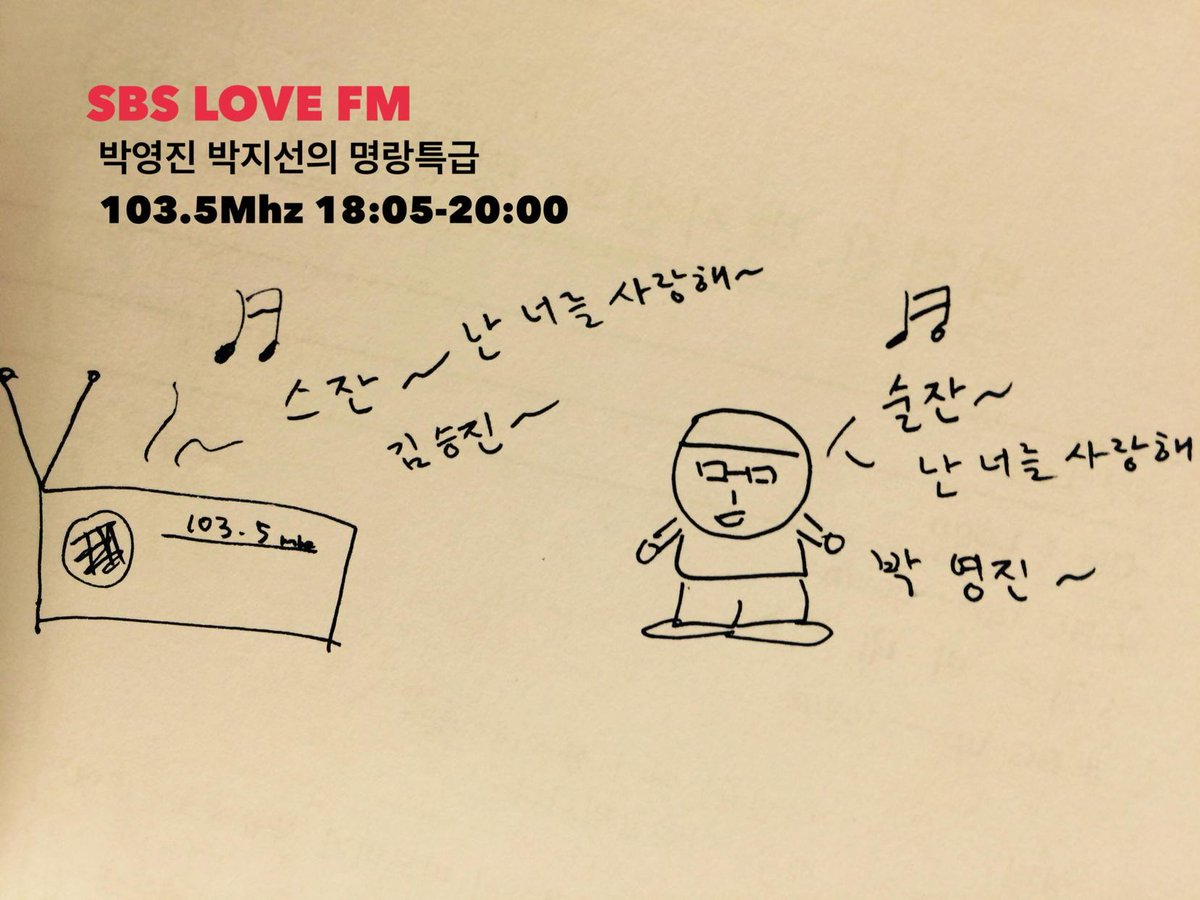 SBS LOVE FM
박영진 박지선의 명랑특급
103.5Mhz 18:05-20:00
스잔~ 난 너를 사랑해~
김승진~
103.5 mhz
술잔~
난 너를 사랑해
박영진~